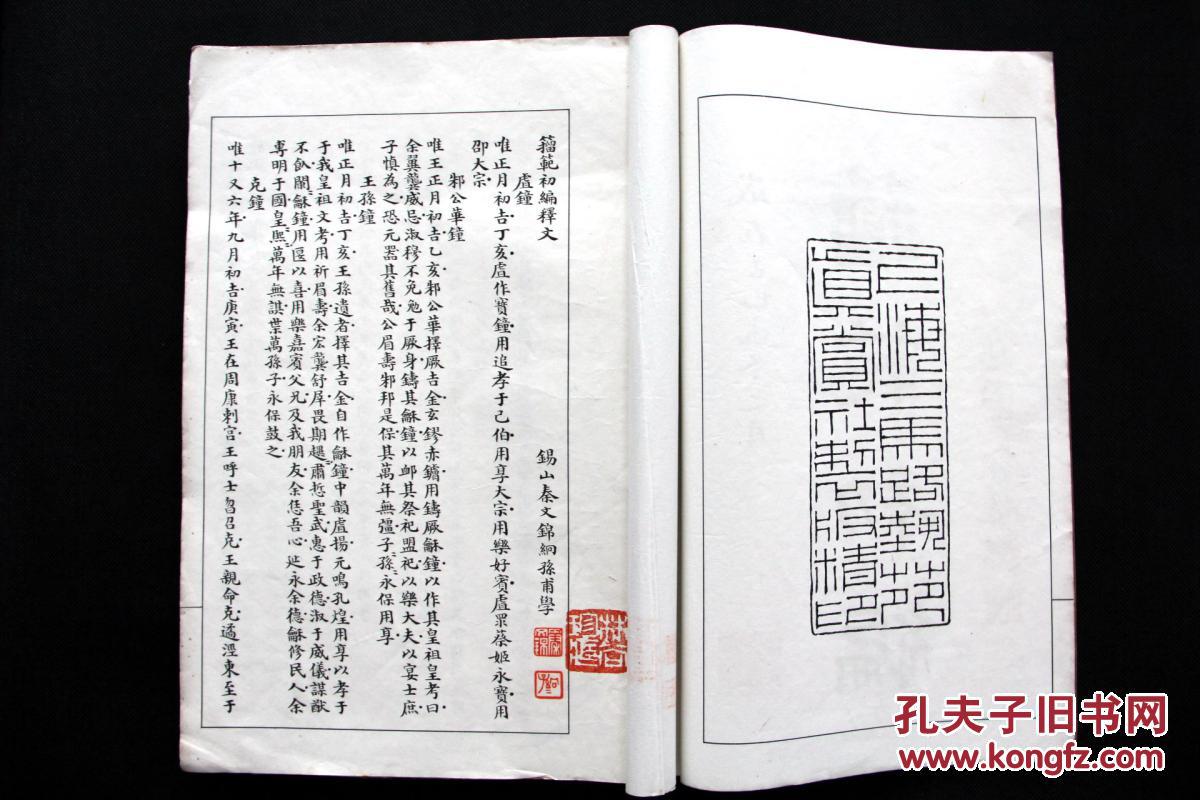 上海三馬路藝苑
真賞社製版精印
籀範初編釋文
錫山秦文錦絅孫甫學
虘鐘
唯正月初吉丁亥虘作寶鐘用追孝于己伯用享大宗用樂好賓虘眔蔡姬永寶用
邵大宗
邾公華鐘
唯王正月初吉乙亥邾公華擇厥吉金玄鏐赤鏞用鑄厥龢鐘以作其皇祖皇考曰
余翼龔威忌淑穆不兔勉于厥身鑄其龢鐘以卹其祭祀盟祀以樂大夫以宴士庶
子慎為之恐元器其舊哉公眉壽邾邦是保其萬年無彊子孫永保用享
王孫鐘
唯正月初吉丁亥王孫遺者擇其吉金自作龢鐘中韻虘揚元鳴孔煌用享以孝于
于我皇祖文考用祈眉壽余宏龔舒屖畏期趩肅悊聖武惠于政德淑于威儀謀猷
不飤闌龢鐘用匽以喜用樂嘉賓父兄及我朋友余恁吾心延永余德龢修民人余
尃明于國皇熙萬年無諆葉萬孫子永保鼓之
克鐘
唯十又六年九月初吉庚寅王在周康剌宮王呼士曶召克王親命克遹涇東至于
孔夫子旧书网
www.kongfz.com